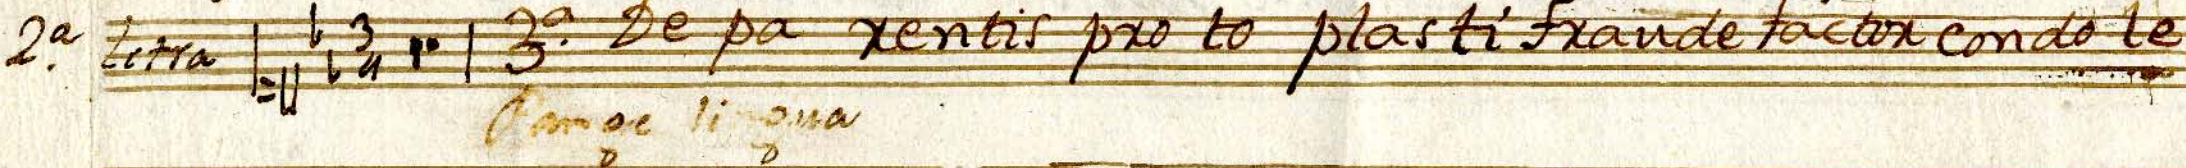 2ª. Letra 3/4 3ª. De pa rentis pro to plasti fraude factor condo le
Pange lingua